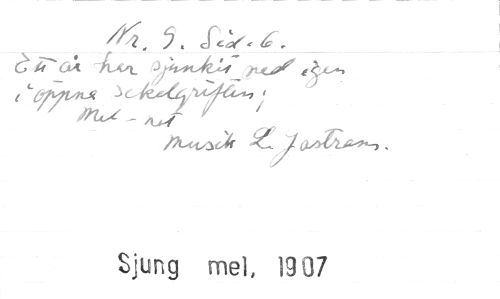 Nr. 9. Sid. 6.
Ett år har sjunkit ned igen
i öppna sekelgriften;
Mel - not
Musik L. Jastram.
Sjung mel, 1907